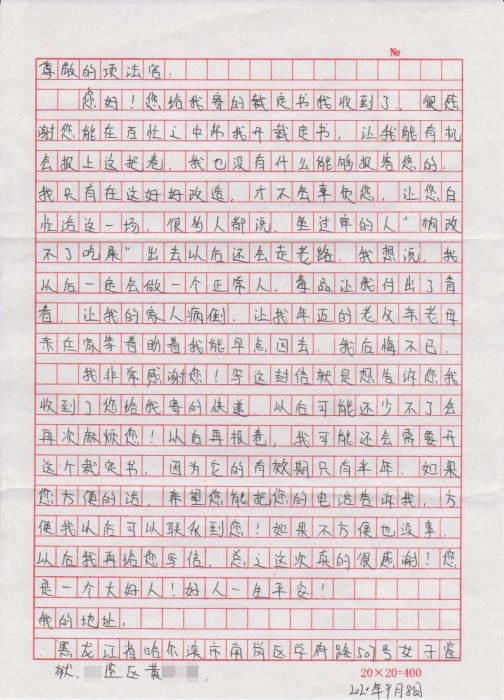 No
尊敬的项法官：
您好！您给我寄的裁定书我收到了。很感
谢您能在百忙之中帮我开裁定书，让我能有机
会报上这批卷。我也没有什么能够报答您的，
我只有在这好好改造，才不会辜负您，让您白
忙活这一场。很多人都说，坐过牢的人“狗改
不了吃屎”出去以后还会走老路。我想说，我
以后一定会做一个正常人，毒品让我付出了青
春，让我的家人病倒，让我年迈的老父亲老母
亲在家等着盼着我能早点回去。我后悔不已。
我非常感谢您！写这封信就是想告诉您我
收到了您给我寄的快递。以后可能还少不了会
再次麻烦您！以后再报卷，我可能还会需要开
这个裁定书，因为它的有效期只有半年。如果
您方便的话，希望您能把您的电话告诉我，方
便我以后可以联系到您！如果不方便也没事，
以后我再给您写信。总之这次真的很感谢！您
是一个大好人！好人一生平安！
我的地址：
黑龙江省哈尔滨市南岗区学府路507号女子监
狱，监区黄
20×20=400
2020年9月8日